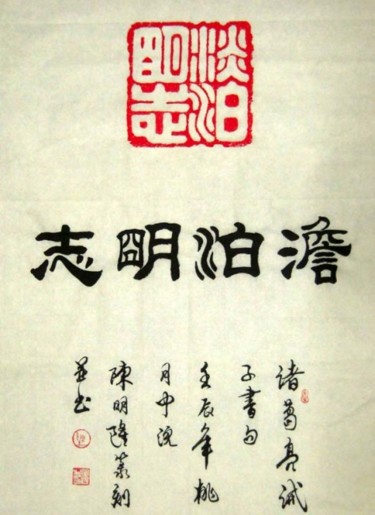 淡泊明志
澹泊明志
诸葛亮诫
子書句
壬辰年桃
月中浣
陳明降篆刻
并书